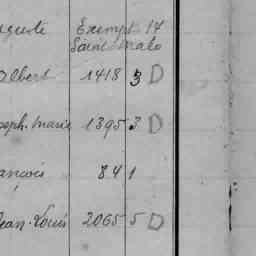 uguste Exempt 14
Saint Malo
Albert 1418 3 D
oseph. Marie 1395 3 D
ançois 841
Jean. Louis 2065 5 D